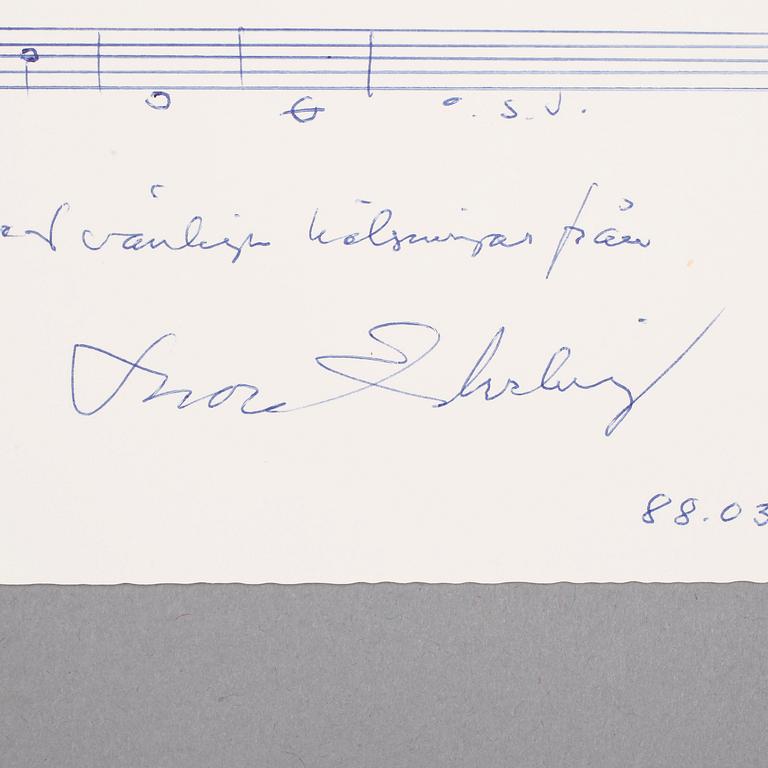 o. s. v.
vänliga hälsningar från
Thore Ehrling
88.03